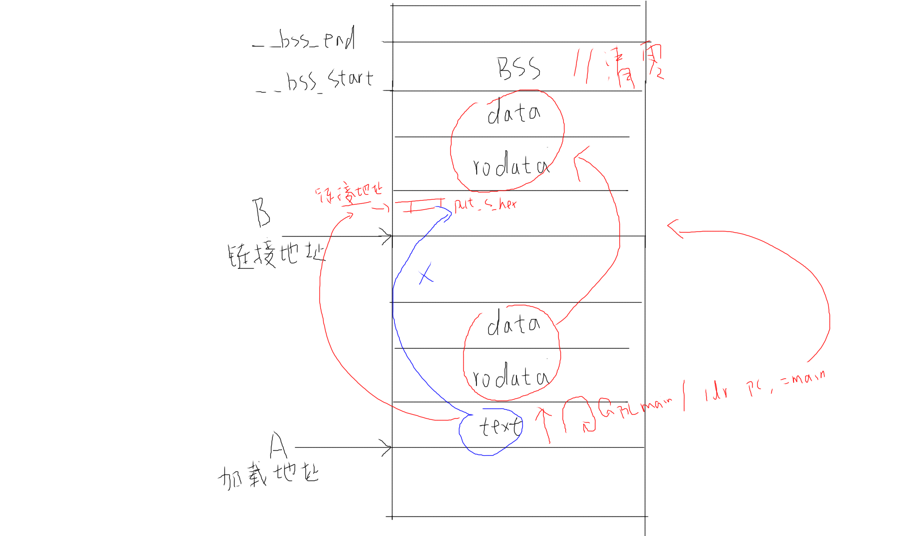 __bss_end
__bss_start
BSS //清零
data
rodata
链接地址
B
链接地址
data
rodata
text
main / ldr pc, =main
A
加载地址